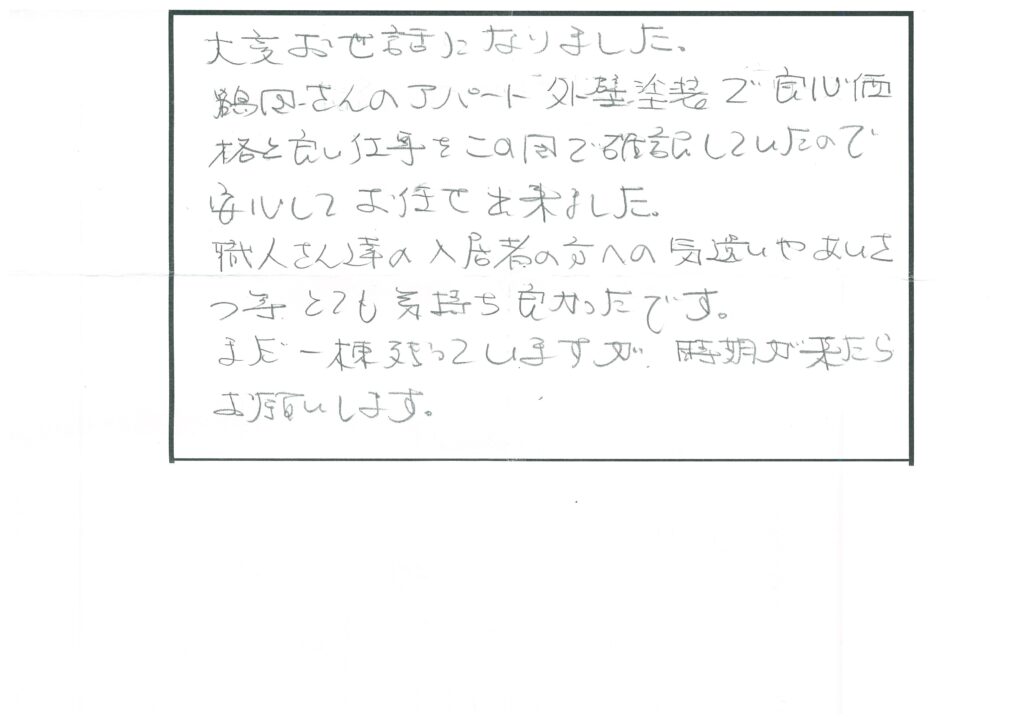 大変お世話になりました。
鶴田さんのアパート外壁塗装で良心価
格と良い仕事をこの目で確認していたので
安心してお任せ出来ました。
職人さん達の入居者の方への気遣いやあいさ
つ等とても気持ち良かったです。
まだ一棟残っていますが、時期が来たら
お願いします。